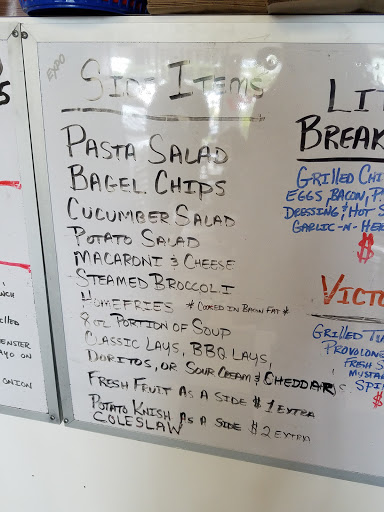 EXPO
SIDE ITEMS
PASTA SALAD
BAGEL CHIPS
CUCUMBER SALAD
POTATO SALAD
MACARONI & CHEESE
STEAMED BROCCOLI
HOMEFRIES * COOKED IN BACON FAT *
8 OZ PORTION OF SOUP
CLASSIC LAYS, BBQ LAYS,
DORITOS, OR SOUR CREAM & CHEDDARS
FRESH FRUIT AS A SIDE $1 EXTRA
POTATO KNISH AS A SIDE $2 EXTRA
COLESLAW
LIT
BREAK
GRILLED CHI
EGGS, BACON, P
DRESSING & HOT S
GARLIC-N-HE
$
VICTO
GRILLED TU
PROVOLONE
FRESH S
MUSTA
SPI
$
S
NCH
ILLED
ENSTER
AYO ON
ONION